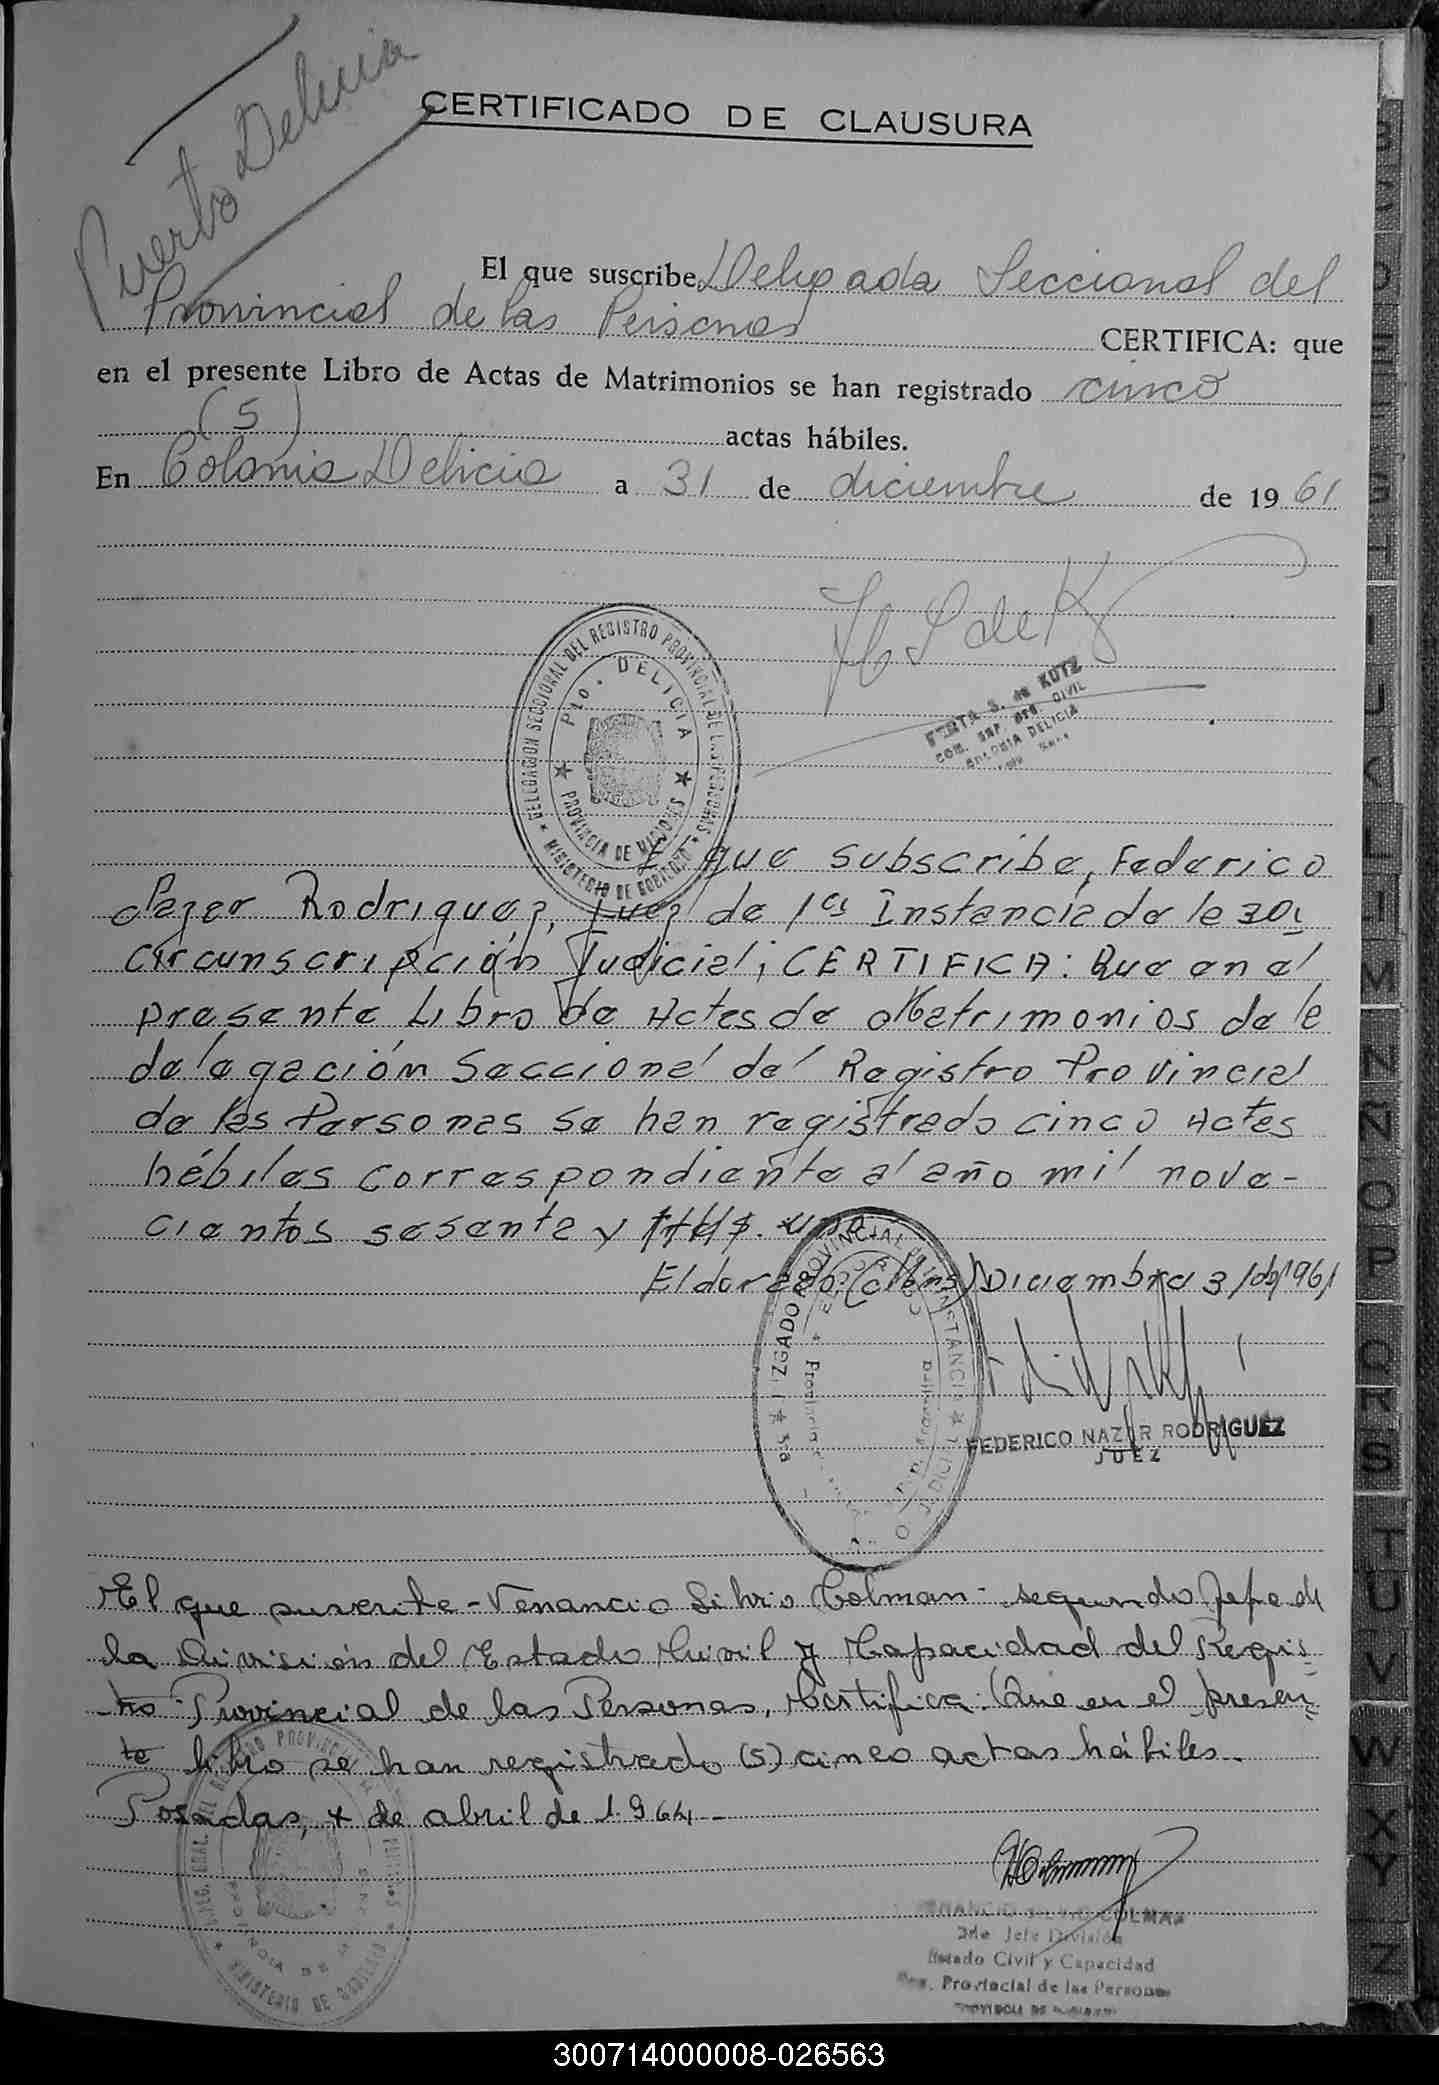 Puerto Delicia
CERTIFICADO DE CLAUSURA
El que suscribe Delegada Seccional del
Provincial de las Personas CERTIFICA: que
en el presente Libro de Actas de Matrimonios se han registrado cinco
(5) actas hábiles.
En Colonia Delicia a 31 de diciembre de 1961
DELEGACION SECCIONAL DEL REGISTRO PROVINCIAL DE LAS PERSONAS
Pto. DELICIA
PROVINCIA DE MISIONES
MINISTERIO DE GOBIERNO
S. de KUTZ
COLONIA DELICIA
que subscribe, Federico
Nazar Rodriguez, Juez de 1ª Instancia de la
circunscripción Judicial; CERTIFICA: Que en el
presente Libro de Actas de Matrimonios de la
delegación Seccional del Registro Provincial
de las Personas se han registrado cinco Actas
hábiles correspondiente al año mil nove-
cientos sesenta y uno
Eldorado, (Mnes) Diciembre 31/de/1961
FEDERICO NAZAR RODRIGUEZ
JUEZ
El que suscribe - Venancio Silvio Colman - segundo Jefe de
la División del Estado Civil y Capacidad del Regis-
tro Provincial de las Personas, Certifica: Que en el presen-
te libro se han registrado (5) cinco actas hábiles.
Posadas, de abril de 1.964 -
VENANCIO SILVIO COLMAN
2do Jefe División
Estado Civil y Capacidad
Reg. Provincial de las Personas
PROVINCIA DE MISIONES
B
C
D
E
F
G
H
I
J
K
L
LL
M
N
Ñ
O
P
Q
R
S
T
U
V
W
X
Y
Z
300714000008-026563